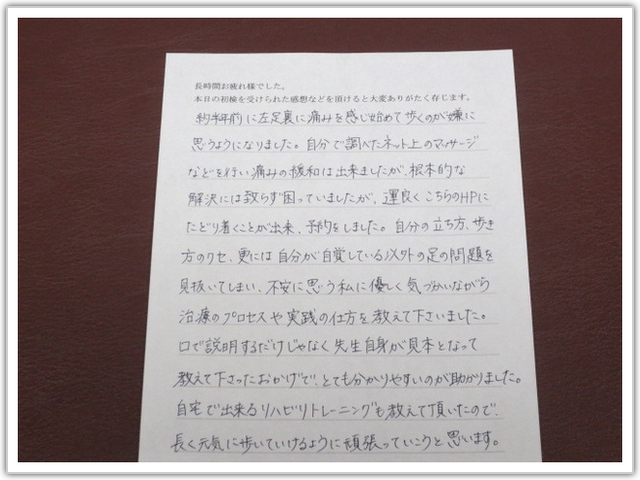 長時間お疲れ様でした。
本日の初検を受けられた感想などを頂けると大変ありがたく存じます。
約半年前に左足裏に痛みを感じ始めて歩くのが嫌に
思うようになりました。自分で調べたネット上のマッサージ
などを行い痛みの緩和は出来ましたが、根本的な
解決には致らず困っていましたが、運良くこちらのHPに
たどり着くことが出来、予約をしました。自分の立ち方、歩き
方のクセ、更には自分が自覚している以外の足の問題を
見抜いてしまい、不安に思う私に優しく気づかいながら
治療のプロセスや実践の仕方を教えて下さいました。
口で説明するだけじゃなく先生自身が見本となって
教えて下さったおかげで、とても分かりやすいのが助かりました。
自宅で出来るリハビリトレーニングも教えて頂いたので、
長く元気に歩いていけるように頑張っていこうと思います。